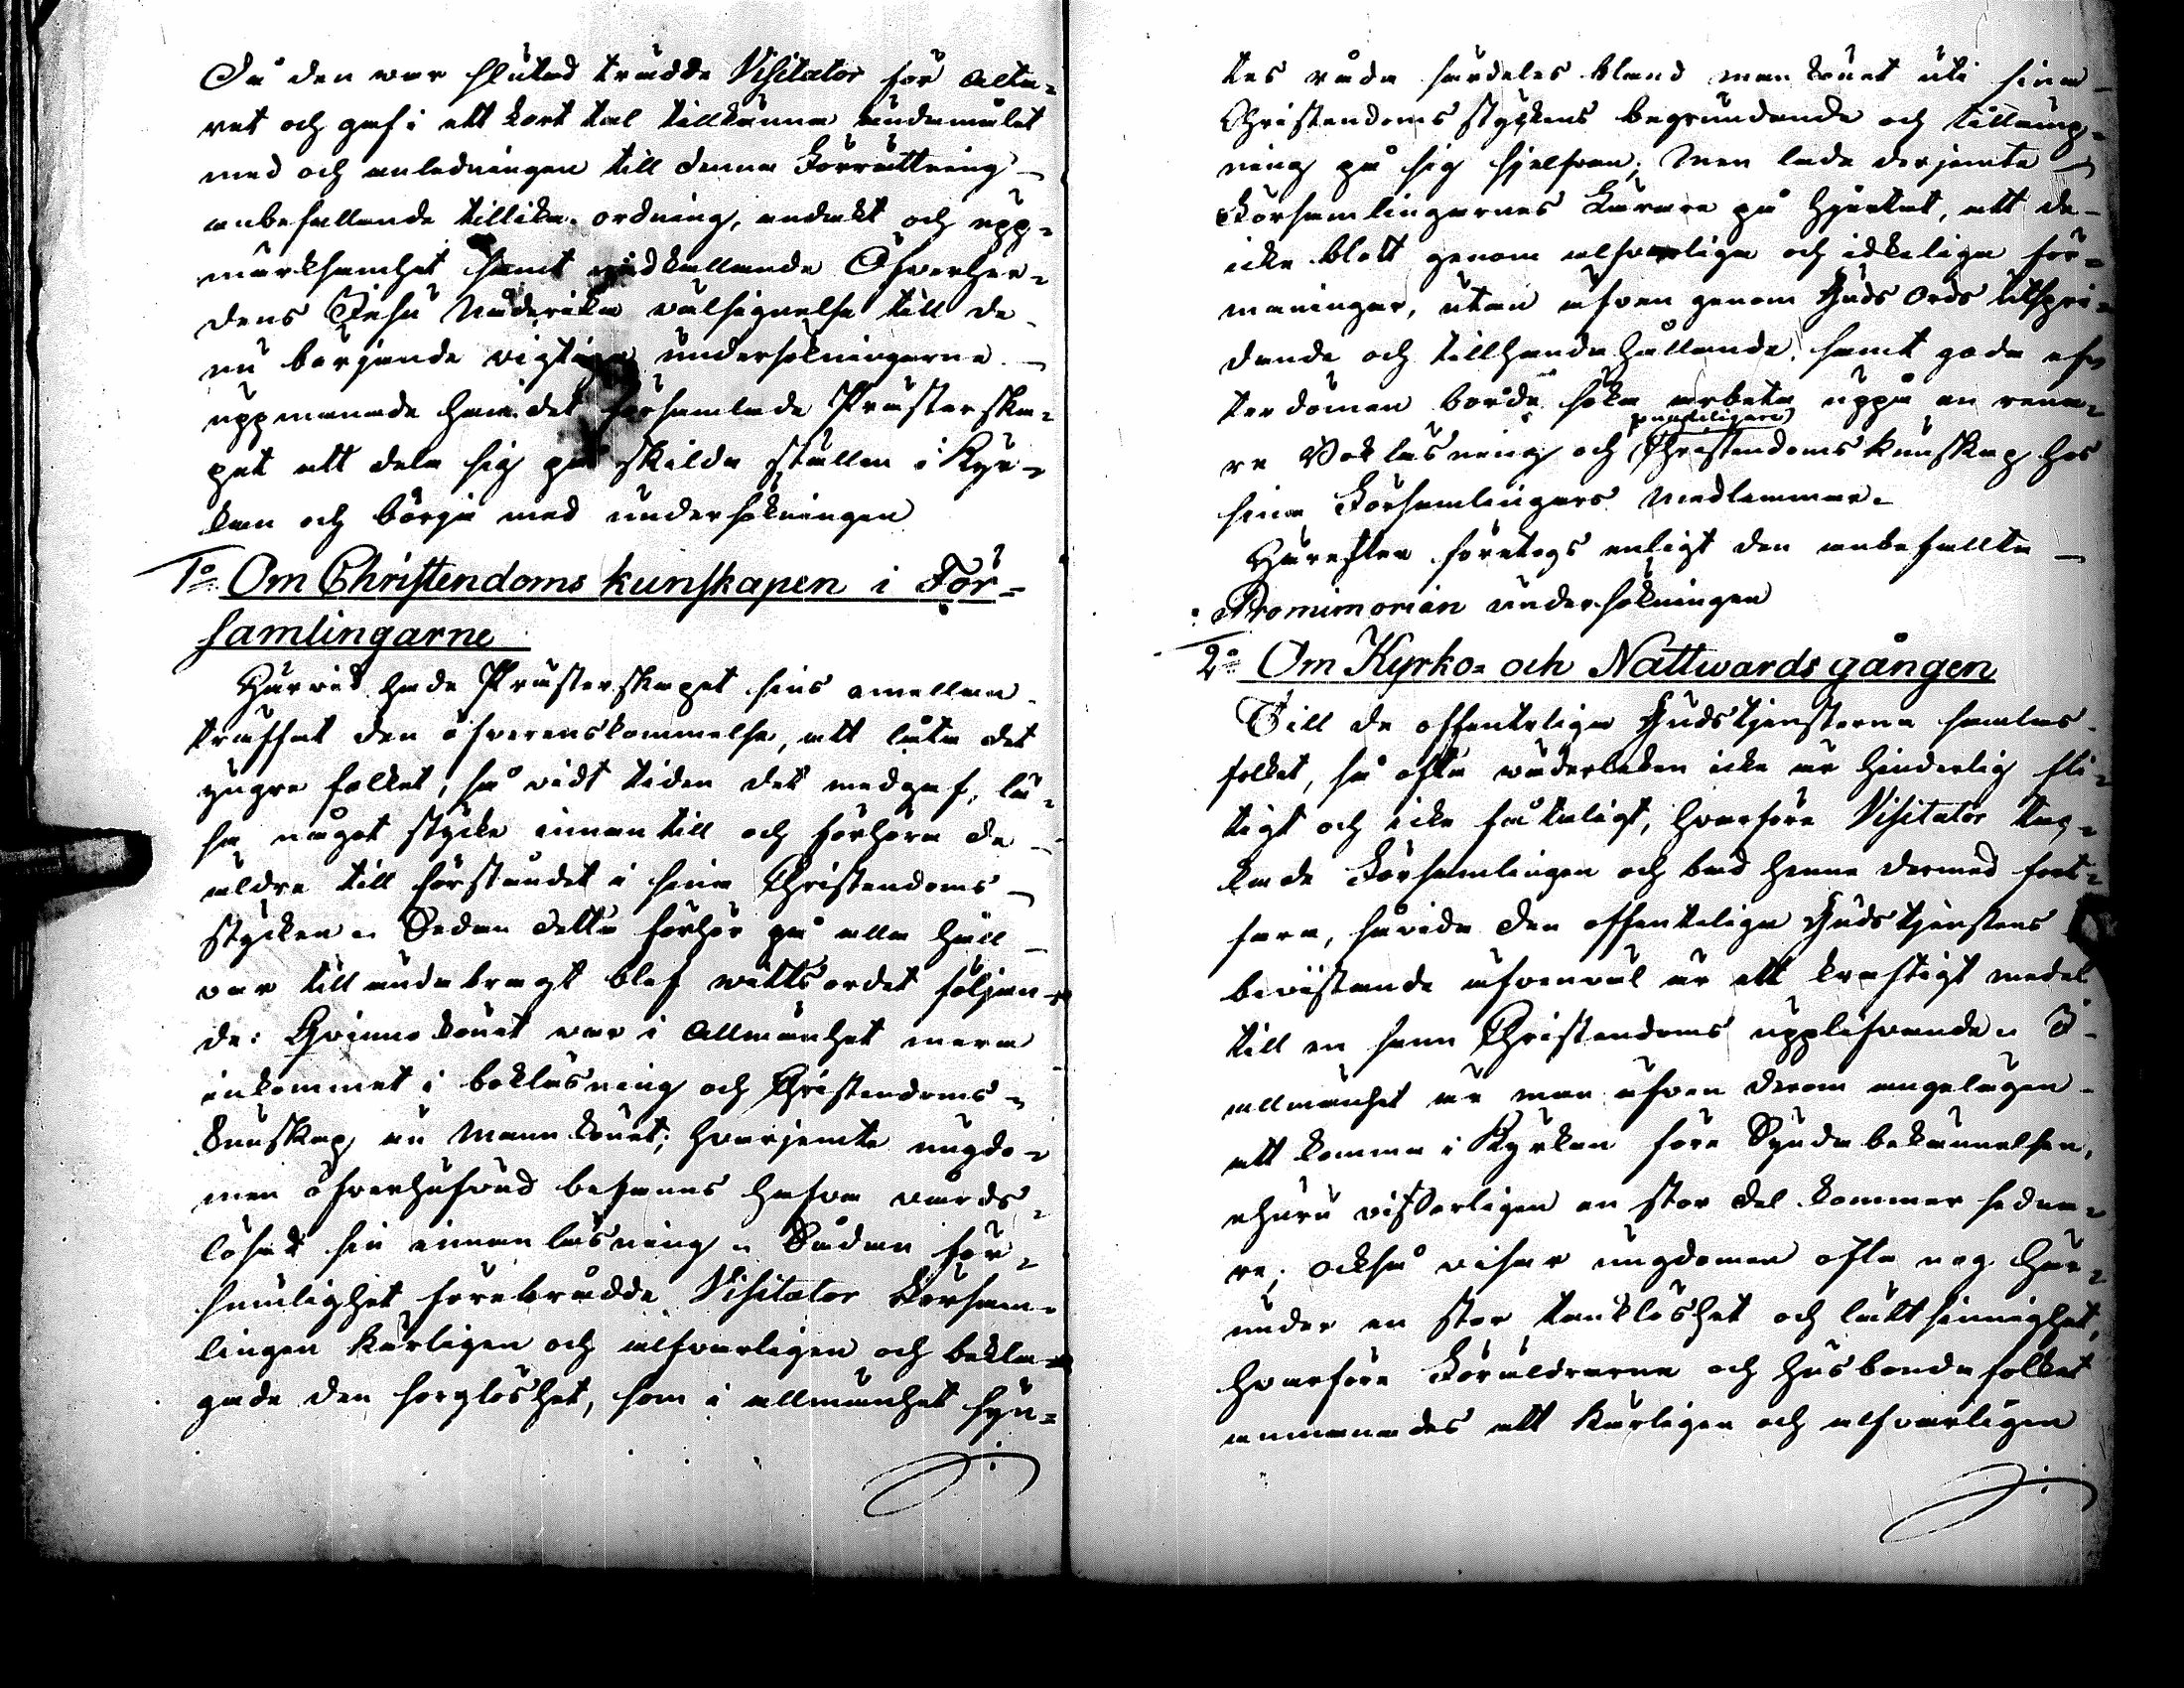 Då den war slutad trädde Visitator för Alta-
ret och gaf i ett kort tal tillkänna ändamålet
med och anledningen till denna Förrättning
anbefallande tillika ordning, andakt och upp-
märksamhet samt nedkallande Öfverher-
dens Jesu Nåderika välsignelse till de
nu börjande vigtiga undersökningarne.
uppmanade han det församlade Prästerska-
pet att dela sig på skilda ställen i Kyr-
kan och börja med undersökningen
1o Om Christendoms kunskapen i För-
samlingarne
Härvid hade Prästerskapet sins emellan
träffat den öfverenskommelse, att låta det
yngre folket, så vidt tiden det medgaf, lä-
sa något stycke innantill och förhöra de
äldre till förståndet i sina Christendoms-
stycken. Sedan detta förhör på alla håll
var till ända bragt blef wittsordet följan-
de: Qvinnokönet var i Allmänhet mera
inkommet i bokläsning och Christendoms-
kunskap än Mannkönet; hvarjemte ungdo-
men öfverhufvud befanns hafva vårds-
lösat sin innanläsning. Sådan för-
sumlighet förebrådde Visitator Församl-
lingen kärligen och alfvarligen och bekla-
gade den sorglöshet, som i allmänhet syn-
tes råda särdeles bland mankönet uti sina
Christendomsstyckens begrundande och tillämp-
ning på sig sjelfvan; Men lade derjemte
Församlingarnes Lärare på hjertat, att de
icke blott genom alfvarliga och idkeliga för-
maningar, utan äfven genom Guds Ords utspri-
dande och tillhandahållande, samt goda ef-
terdömen borde söka arbeta uppå en rena-
re Bokläsning och grundeligare Christendoms kunskap hos
sina Församlingars Medlemmar.
Härefter företogs enligt den anbefallta
Promimorian undersökningen
2o Om Kyrko- och Nattwardsgången
Till de offenteliga Gudstjensterna samlas
folket, så ofta väderleken icke är hinderlig fli-
tigt och icke fåtaligt, hvarföre Visitator tac-
kade Församlingen och bad henne dermed fort-
fara, såvida den offenteliga Gudstjenstens
bevistande äfvenväl är ett kraftigt medel
till en sann Christendoms upplifvande. I
allmänhet är man äfven derom angelägen
att komma i Kyrkan före Syndabekännelsen,
ehuru visserligen en stor del kommer sedna-
re; också visar ungdomen ofta nog här-
under en stor tanklöshet och lättsinnighet,
hvarföre Föräldrarne och husbondafolket
anmanades att kärligen och alfvarligen